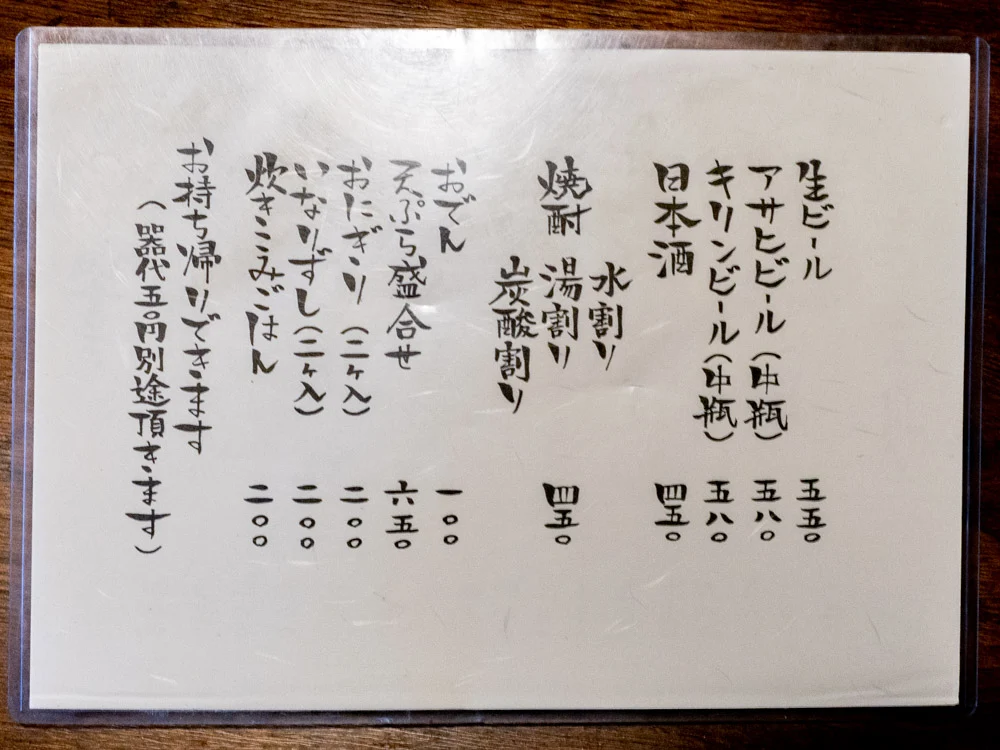 生ビール 五五〇
アサヒビール（中瓶） 五八〇
キリンビール（中瓶） 五八〇
日本酒 四五〇
水割り
焼酎 湯割り 四五〇
炭酸割り
おでん 一〇〇
天ぷら盛合せ 六五〇
おにぎり（二ヶ入） 二〇〇
いなりずし（二ヶ入） 二〇〇
炊きこみごはん 二〇〇
お持ち帰りできます
（器代五〇円別途頂きます）